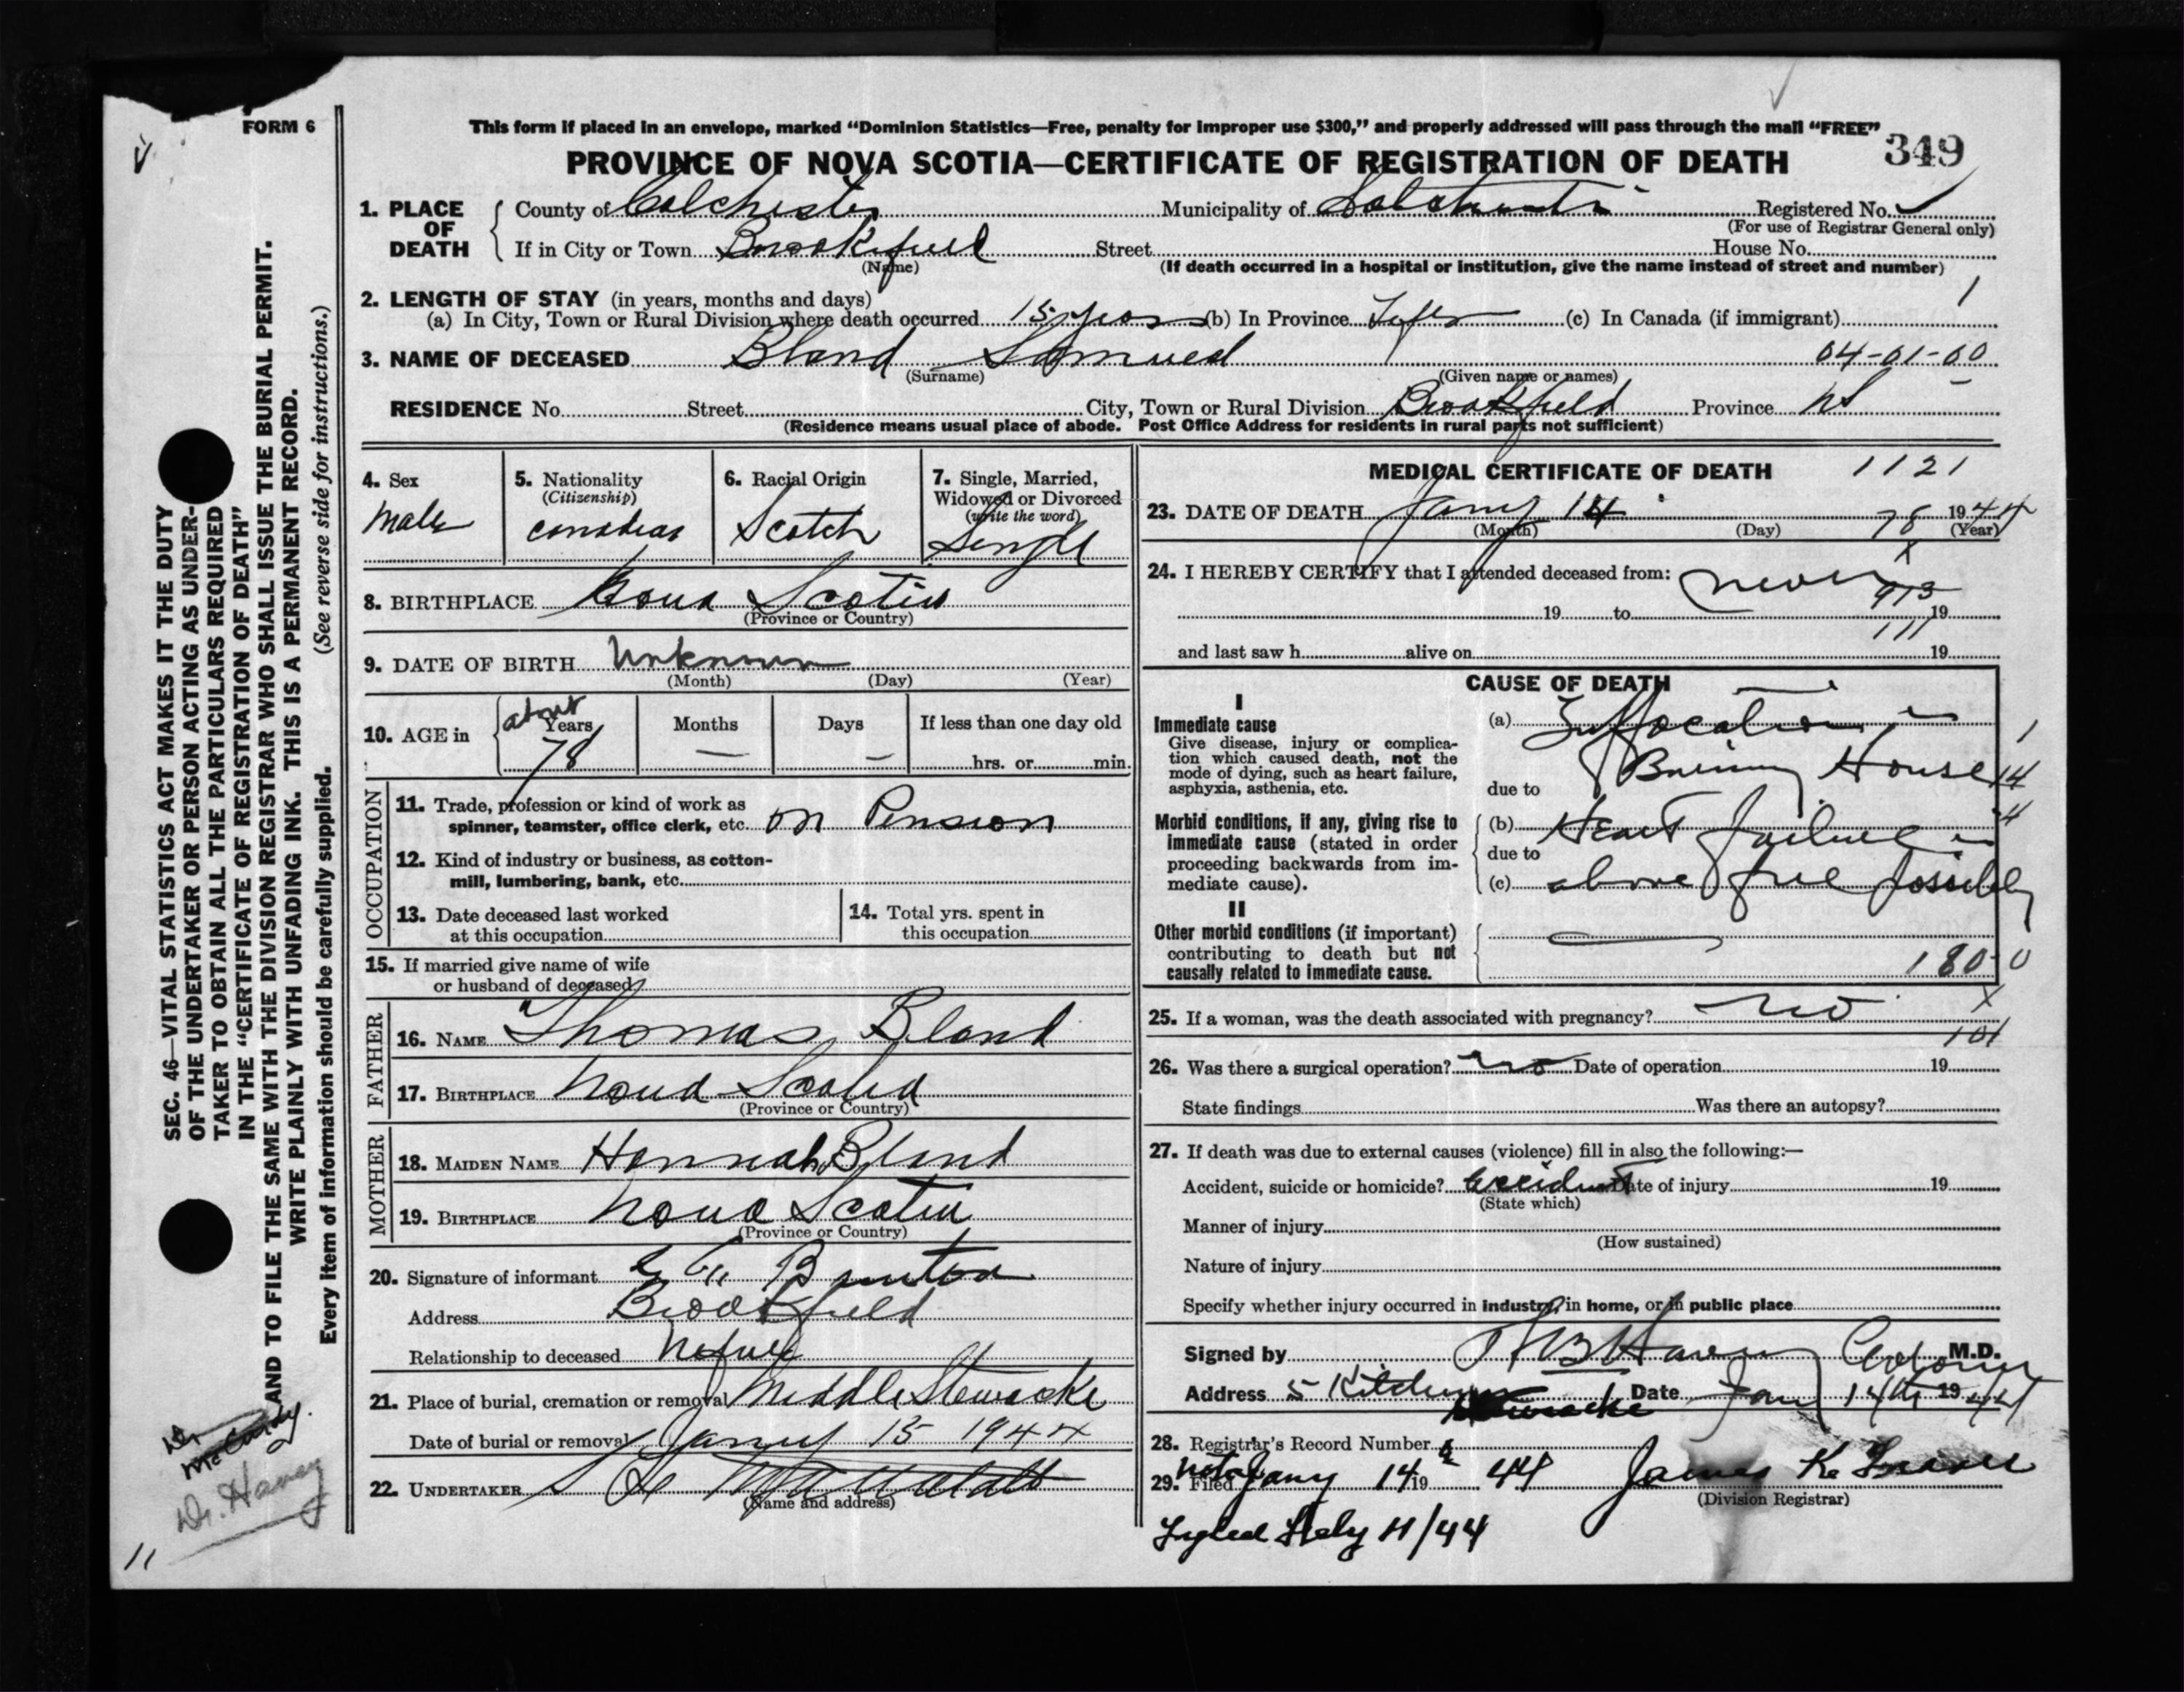 FORM 6
This form if placed in an envelope, marked “Dominion Statistics—Free, penalty for improper use $300,” and properly addressed will pass through the mail “FREE”
PROVINCE OF NOVA SCOTIA—CERTIFICATE OF REGISTRATION OF DEATH 349
1. PLACE OF DEATH
County of Colchester Municipality of Registered No.
(For use of Registrar General only)
If in City or Town Brookfield Street House No.
(Name) (If death occurred in a hospital or institution, give the name instead of street and number)
2. LENGTH OF STAY (in years, months and days) 1
(a) In City, Town or Rural Division where death occurred 15 years (b) In Province Life (c) In Canada (if immigrant)
3. NAME OF DECEASED Bland Samuel 04-01-00
(Surname) (Given name or names)
RESIDENCE No. Street City, Town or Rural Division Brookfield Province NS
(Residence means usual place of abode. Post Office Address for residents in rural parts not sufficient)
4. Sex
Male
5. Nationality
(Citizenship)
Canadian
6. Racial Origin
Scotch
7. Single, Married,
Widowed or Divorced
(write the word)
Single
8. BIRTHPLACE Nova Scotia
(Province or Country)
9. DATE OF BIRTH Unknown
(Month) (Day) (Year)
10. AGE in about Years Months Days If less than one day old
78 — — hrs. or min.
OCCUPATION
11. Trade, profession or kind of work as
spinner, teamster, office clerk, etc. on Pension
12. Kind of industry or business, as cotton-
mill, lumbering, bank, etc.
13. Date deceased last worked
at this occupation
14. Total yrs. spent in
this occupation
15. If married give name of wife
or husband of deceased
FATHER
16. NAME Thomas Bland
17. BIRTHPLACE Nova Scotia
(Province or Country)
MOTHER
18. MAIDEN NAME Hannah Bland
19. BIRTHPLACE Nova Scotia
(Province or Country)
20. Signature of informant
Address Brookfield
Relationship to deceased
21. Place of burial, cremation or removal Middle Stewiacke
Date of burial or removal Jany 15 1944
22. UNDERTAKER
(Name and address)
MEDICAL CERTIFICATE OF DEATH 1121
23. DATE OF DEATH Jany 14 78 1944
(Month) (Day) (Year)
24. I HEREBY CERTIFY that I attended deceased from: never
19 to 19
111
and last saw h alive on 19
CAUSE OF DEATH
I
Immediate cause
Give disease, injury or complica-
tion which caused death, not the
mode of dying, such as heart failure,
asphyxia, asthenia, etc.
(a) Suffocation in 1
due to Burning House 14
Morbid conditions, if any, giving rise to
immediate cause (stated in order
proceeding backwards from im-
mediate cause).
(b) Heart Failure in
due to
(c) above fire possibly
II
Other morbid conditions (if important)
contributing to death but not
causally related to immediate cause.
180-0
25. If a woman, was the death associated with pregnancy? no
101
26. Was there a surgical operation? no Date of operation 19
State findings Was there an autopsy?
27. If death was due to external causes (violence) fill in also the following:—
Accident, suicide or homicide? Accident Date of injury 19
(State which)
Manner of injury
(How sustained)
Nature of injury
Specify whether injury occurred in industry, in home, or in public place
Signed by M.D.
Address Date Jany 14th 1944
28. Registrar's Record Number
29. Filed Jany 14 19 44 James K. Fraser
(Division Registrar)
11/44
SEC. 46—VITAL STATISTICS ACT MAKES IT THE DUTY
OF THE UNDERTAKER OR PERSON ACTING AS UNDER-
TAKER TO OBTAIN ALL THE PARTICULARS REQUIRED
IN THE “CERTIFICATE OF REGISTRATION OF DEATH”
AND TO FILE THE SAME WITH THE DIVISION REGISTRAR WHO SHALL ISSUE THE BURIAL PERMIT.
WRITE PLAINLY WITH UNFADING INK. THIS IS A PERMANENT RECORD.
Every item of information should be carefully supplied. (See reverse side for instructions.)
Dr.
McCurdy
Dr. Havey
11